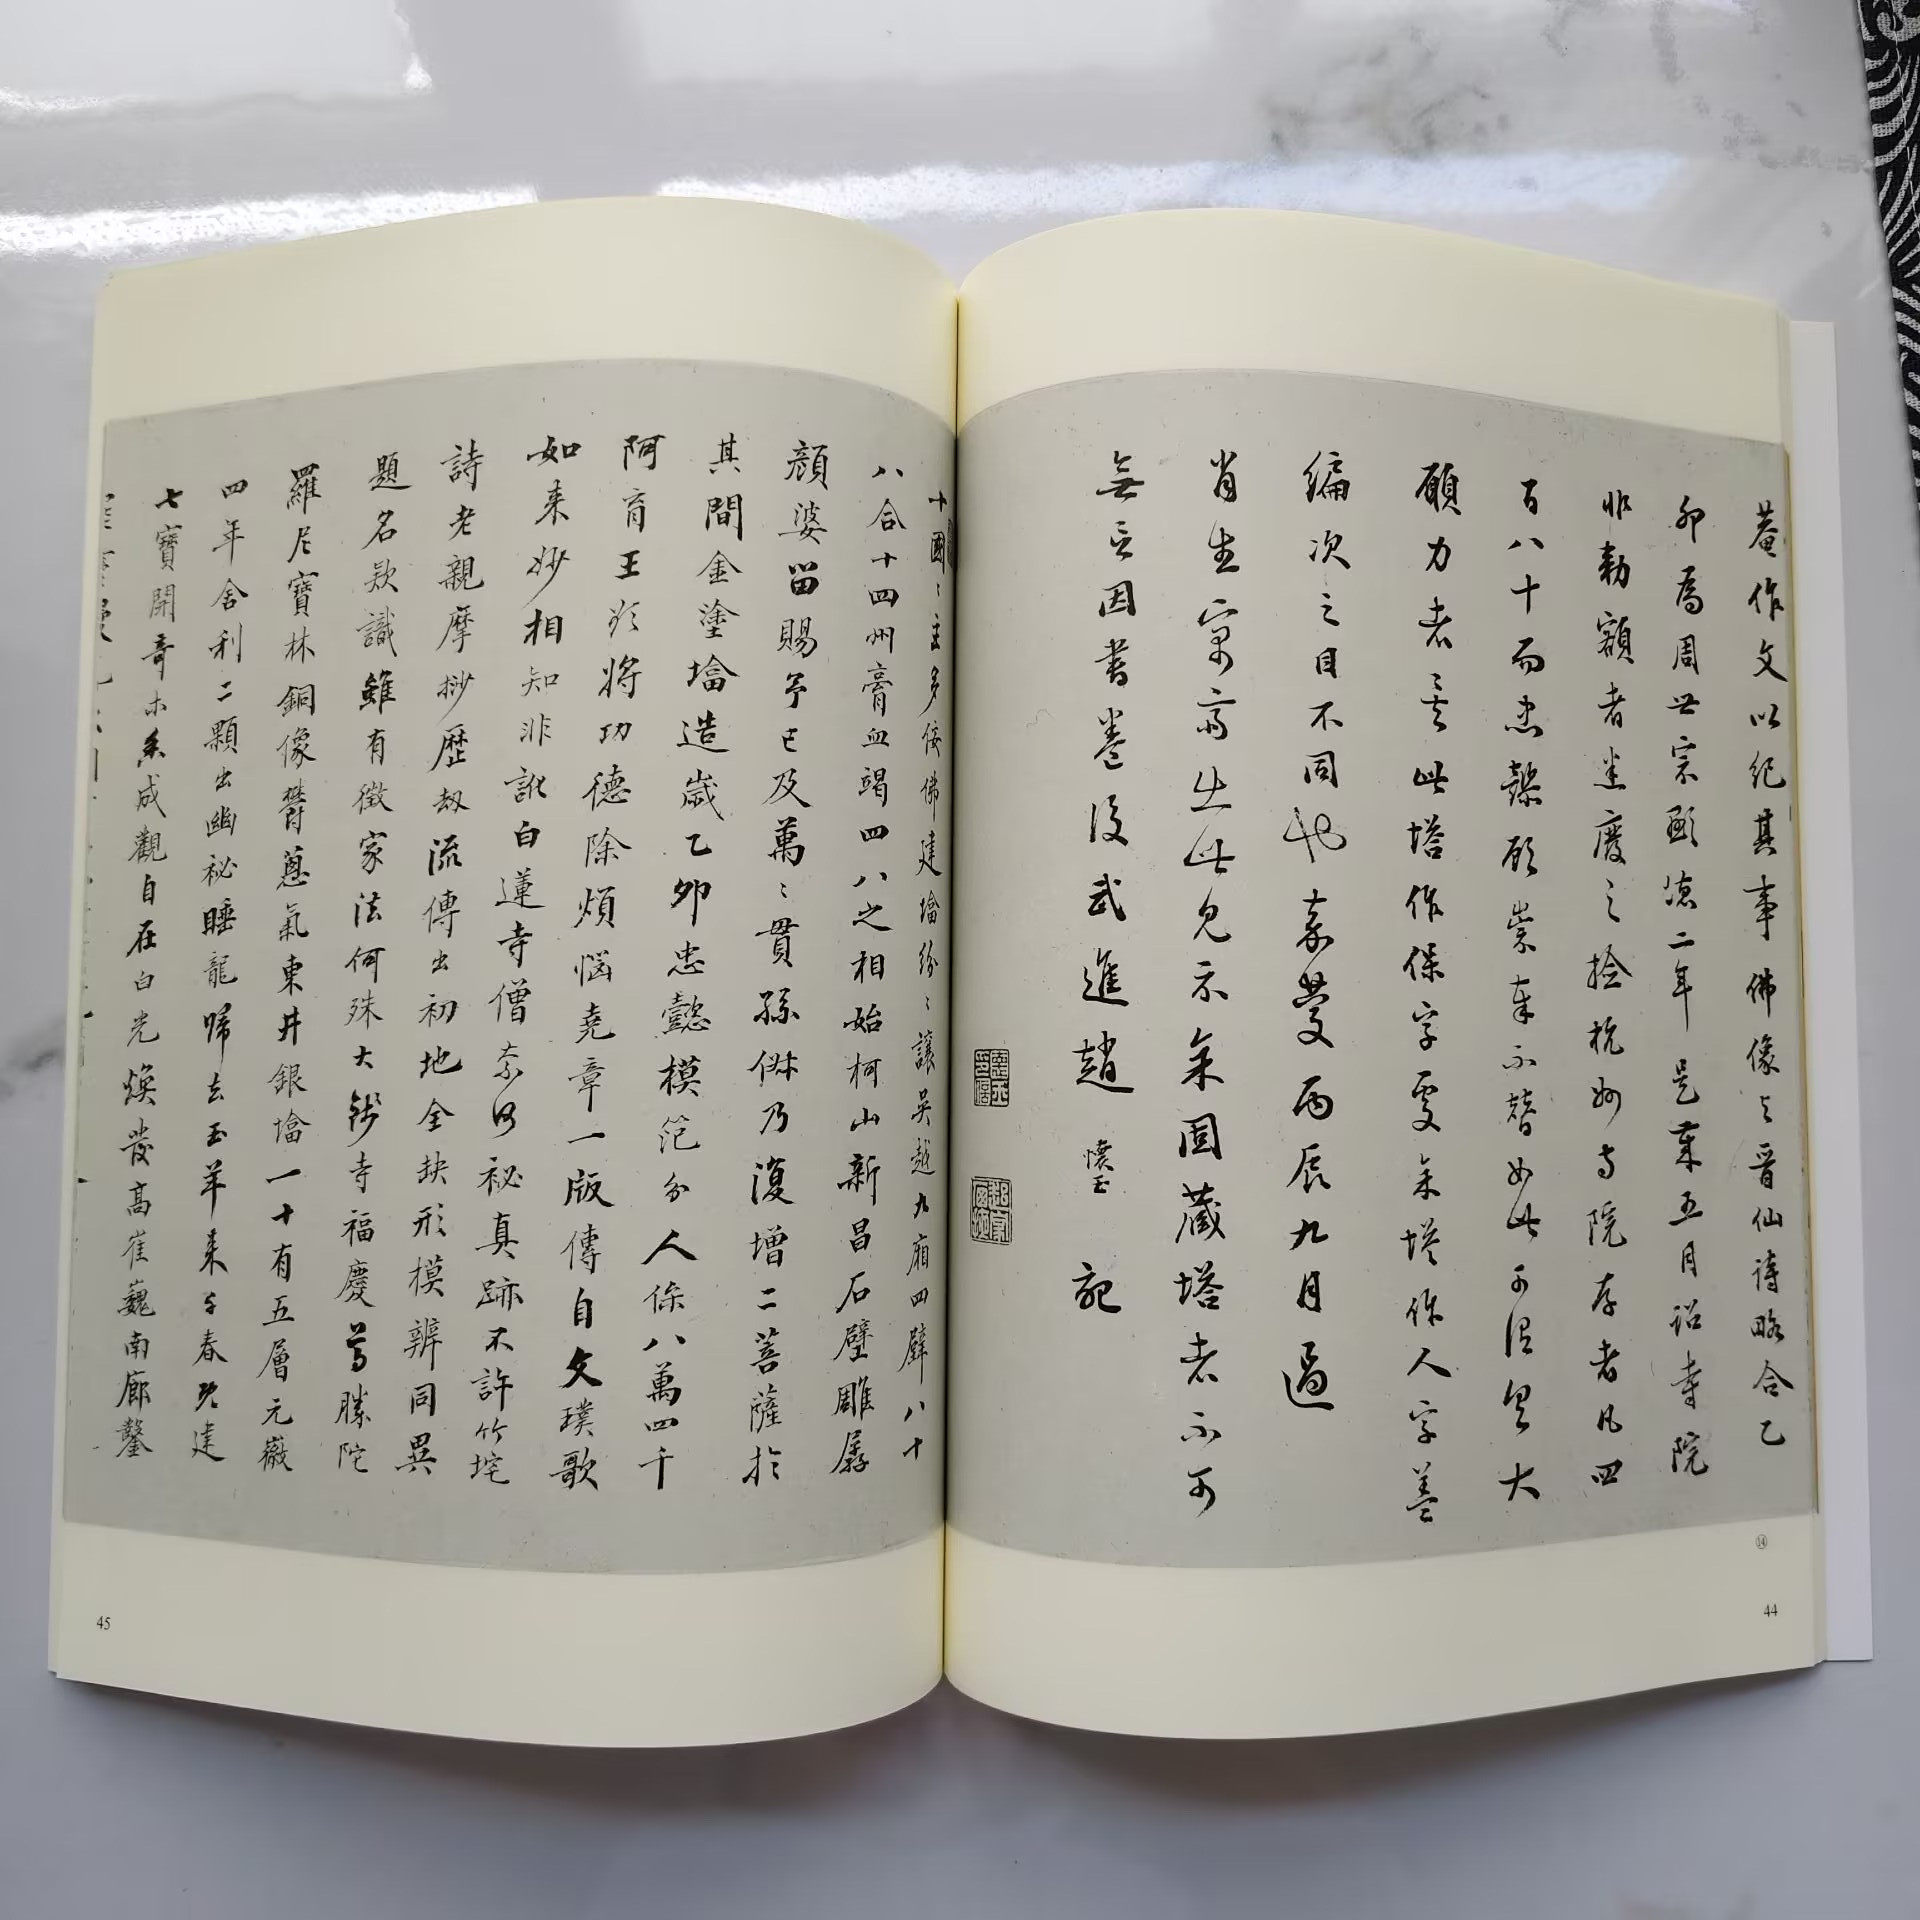 菴作文以紀其事佛像与晋仙詩略合乙
卯為周世宗顯德二年是年五月詔寺院
非勅額者悉廢之撿杭州寺院存者凡四
百八十而忠懿顧崇奉不替如此可謂具大
願力者矣此塔作保字更朱塔作人字蓋
編次之目不同也嘉慶丙辰九月過
肖生寓齋出此見示余固藏塔者不可
無言因書卷後武進趙 懷玉 記
⑭
44
十國〻主多佞佛建㙮紛〻讓吳越九廂四壁八十
八合十四州膏血竭四八之相始柯山新昌石壁雕孱
顏婆留賜予已及萬〻貫孫俶乃復增二菩薩於
其間金塗㙮造歲乙卯忠懿模范分人保八萬四千
阿育王欲將功德除煩惱堯章一版傳自文璞歌
如来妙相知非訛白蓮寺僧奈何秘真跡不許竹垞
詩老親摩挱歷劫流傳出初地全缺形模辨同異
題名欵識雖有徵家法何殊大錢寺福慶蓴勝陀
羅尼寶林銅像鬱蔥氣東井銀㙮一十有五層元徽
四年舍利二顆出幽祕睡龍歸去玉羊来千春況建
七寶開奇木糸成觀自在白光煥發高崔巍南廊鑿
45